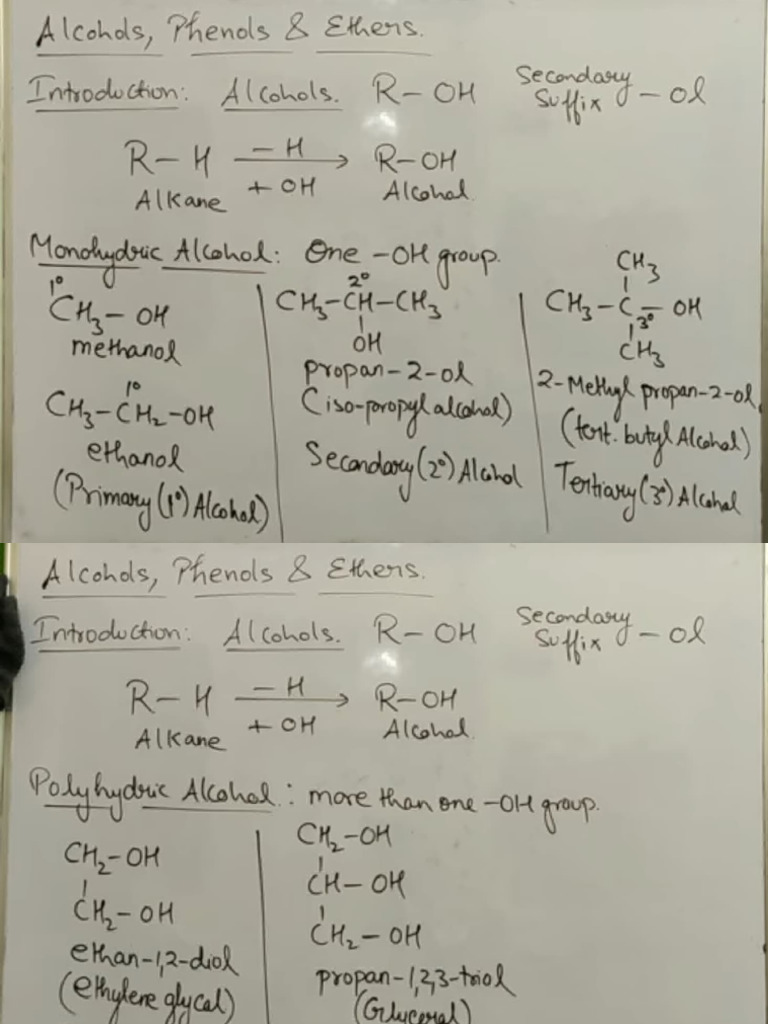 Alcohols, Phenols & Ethers.
Introduction: Alcohols. R-OH Secondary Suffix - ol
R-H -H +OH R-OH
Alkane Alcohol
Monohydric Alcohol: One -OH group.
1°
CH3-OH
methanol
1°
CH3-CH2-OH
ethanol
(Primary (1°) Alcohol)
2°
CH3-CH-CH3
OH
propan-2-ol
(iso-propyl alcohol)
Secondary (2°) Alcohol
CH3
CH3-C-OH
3°
CH3
2-Methyl propan-2-ol
(tert. butyl Alcohol)
Tertiary (3°) Alcohol
Alcohols, Phenols & Ethers.
Introduction: Alcohols. R-OH Secondary Suffix - ol
R-H -H +OH R-OH
Alkane Alcohol
Polyhydric Alcohol: more than one -OH group.
CH2-OH
CH2-OH
ethan-1,2-diol
(ethylene glycol)
CH2-OH
CH-OH
CH2-OH
propan-1,2,3-triol
(Glycerol)